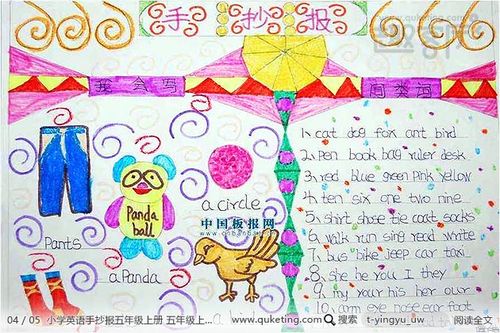 www.quketing.com
手抄报
我会写
同类词
1. cat dog fox ant bird
2. pen book bag ruler desk
3. red blue green pink yellow
4. ten six one two nine
5. shirt shose tie coat socks
6. walk run sing read write
7. bus bike jeep car taxi
8. she he you I they
9. my your his her our
10. arm eye nose ear foot
Panda
ball
a circle
中国板报网
Pants
a Panda
04 / 05 小学英语手抄报五年级上册 五年级上...
www.quketing.com
搜索 t-yingyu_uw 阅读全文